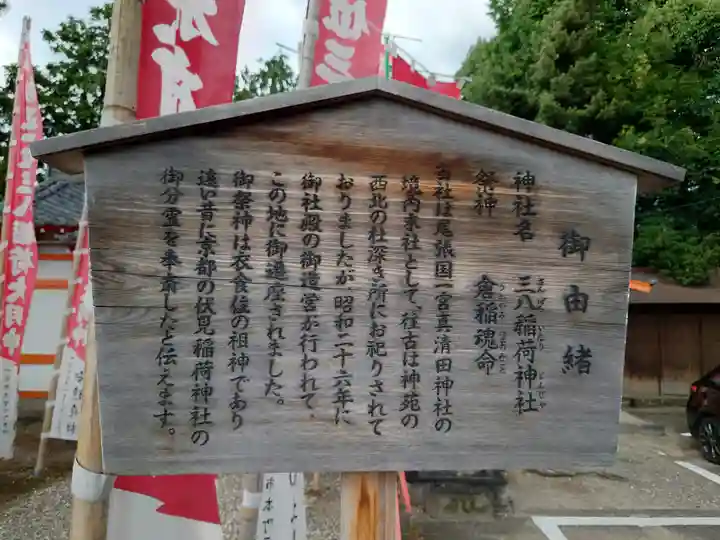 御由緒
神社名 三八稲荷神社
祭神 倉稲魂命
当社は尾張国一宮真清田神社の
境内末社として、往古は神苑の
西北の杜深き所にお祀りされて
おりましたが、昭和二十六年に
御社殿の御造営が行われて、
この地に御遷座されました。
御祭神は衣食住の祖神であり
遠い昔に京都の伏見稲荷神社の
御分霊を奉斎したと伝えます。